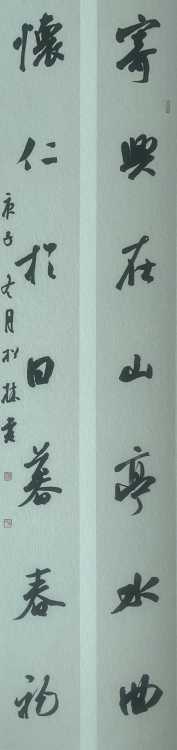 寄興在山亭水曲
懷仁於日暮春初
庚子冬月松林書